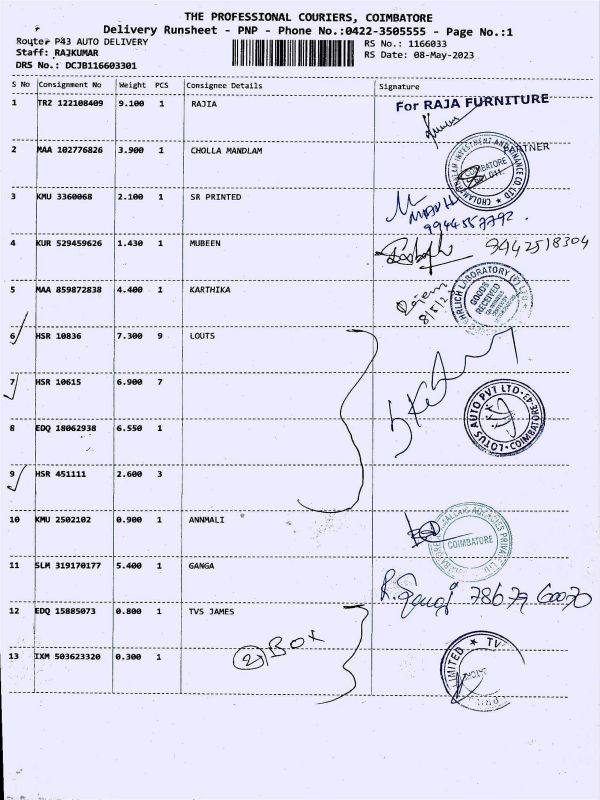 THE PROFESSIONAL COURIERS, COIMBATORE
Delivery Runsheet - PNP - Phone No.:0422-3505555 - Page No.:1
Route: P43 AUTO DELIVERY
RS No.: 1166033
Staff: RAJKUMAR
RS Date: 08-May-2023
DRS No.: DCJB116603301
S No Consignment No Weight PCS Consignee Details Signature
1 TRZ 122108409 9.100 1 RAJIA
For RAJA FURNITURE
PARTNER
2 MAA 102776826 3.900 1 CHOLLA MANDLAM
COIMBATORE
3 KMU 3360068 2.100 1 SR PRINTED
9944557792.
4 KUR 529459626 1.430 1 MUBEEN
9442518304
5 MAA 859872838 4.400 1 KARTHIKA
EHRLICH LABORATORY (P) LTD
GOODS
RECEIVED
6 HSR 10836 7.300 9 LOUTS
7 HSR 10615 6.900 7
LOTUS AUTO PVT LTD COIMBATORE-43
8 EDQ 18062938 6.550 1
9 HSR 451111 2.600 3
10 KMU 2502102 0.900 1 ANNMALI
COIMBATORE
11 SLM 319170177 5.400 1 GANGA
78679 60070
12 EDQ 15885073 0.800 1 TVS JAMES
2 BOX
13 IXM 503623320 0.300 1